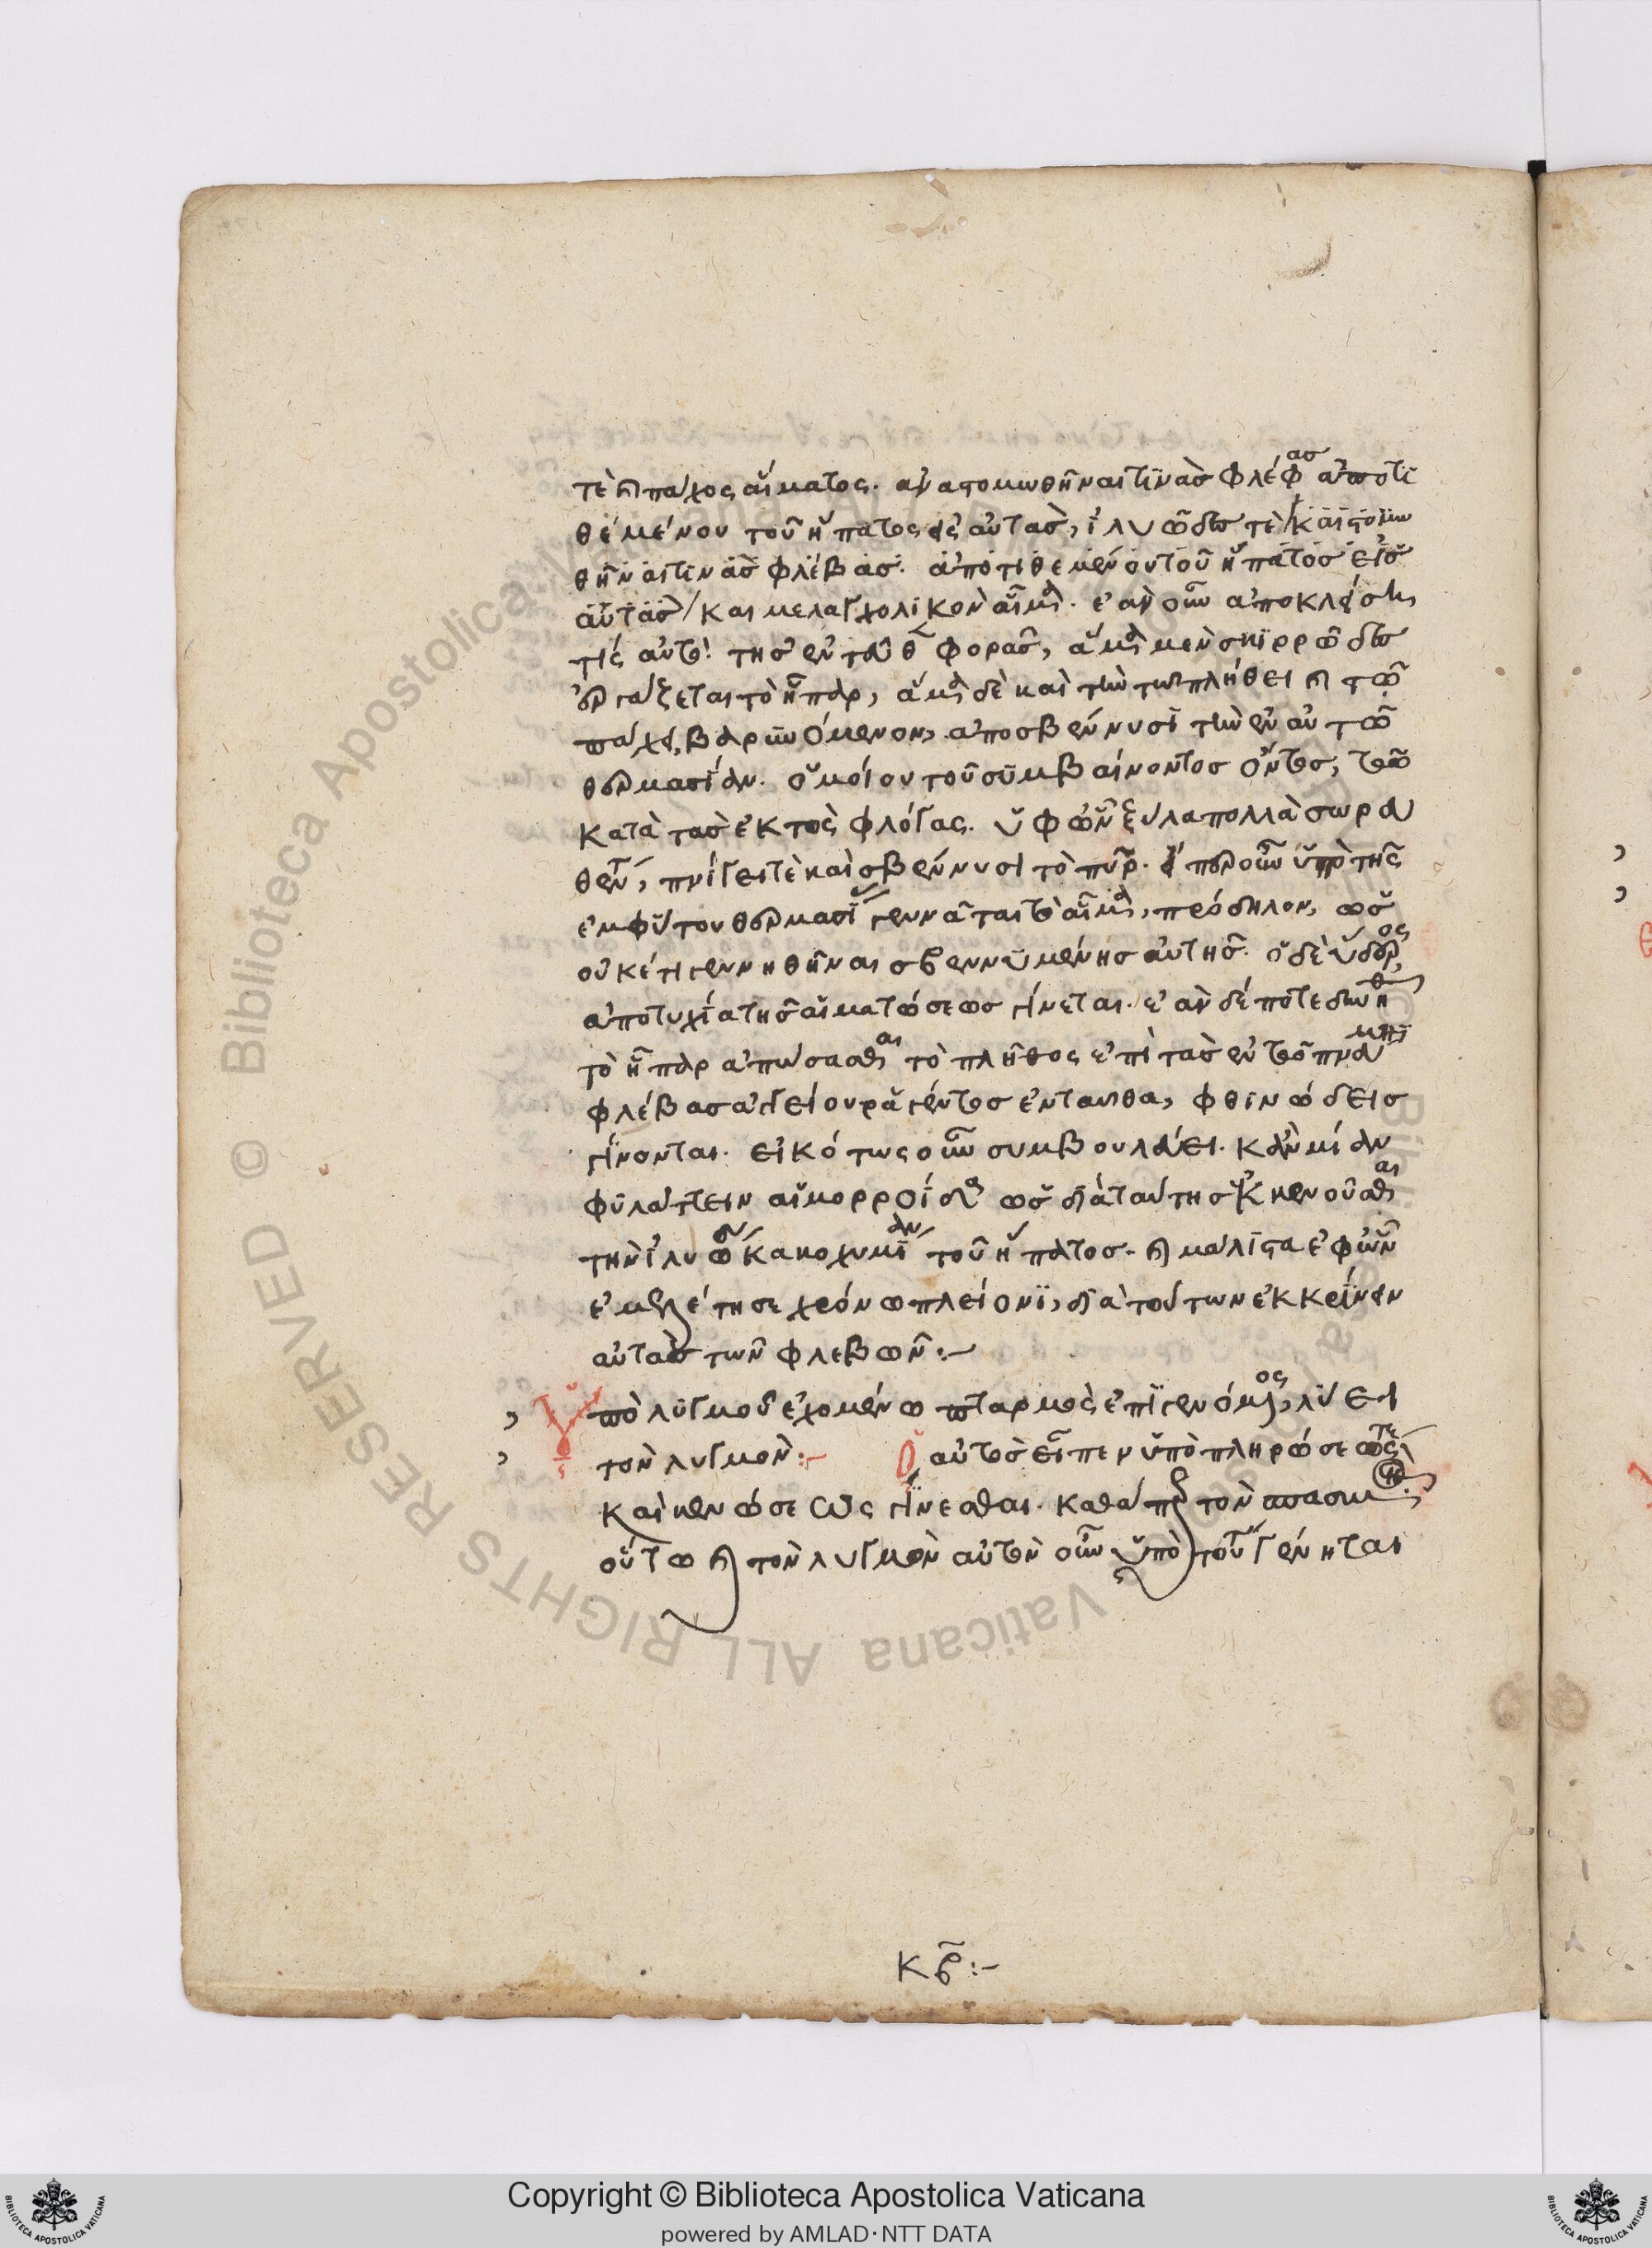 τὲ καὶ πάχος αἵματος. ἀναστομωθῆναι τινὰσ φλέφασ ἀποτι
θέμένου τοῦ ἥπατος εἰς αὐτὰσ, ἰλυῶδεσ τὲ / καὶ στομω
θῆναι τινὰσ φλέβασ. ἀποτιθεμένου τοῦ ἥπατοσ εἰσ
αὐτὰσ / και μελαγχολικὸν αἷμα. ἐὰν οὖν ἀποκλείσῃ
τίς αὐτὸ τησ ἐν φορᾶσ, αἷμα μὲν σκιρρῶδεσ
ἐργάζεται τὸ ἧπαρ, ἅμα δὲ καὶ τὴν τῶ πλήθει καὶ τῶ
πάχει βαρυνόμενον, ἀποσβέννυσι τὴν ἐν αὐτῶ
θερμασίαν. ὅμοίον τοῦ συμβαίνοντοσ ὄντοσ, τῶ
κατὰ τὰσ ἐκτὸς φλόγας. ὑφῶν ξύλα πολλὰ σωρευ
θέντ, πνίγει τὲ καὶ σβέννυσι τὸ πῦρ. εἴπερ οὖν ὑπὸ τῆς
ἐμφύτου θερμασί γεννᾶται τὸ αἷμα, πρόδηλον, ὡσ
οὐκέτι γεννηθῆναι σβεννυμένησ αὐτῆσ. ὁ δὲ ὕδερος
ἀποτυχία τῆσ αἱματώσεωσ γίνεται. ἐὰν δέ ποτε δυνηθῆ
τὸ ἧπαρ ἀπώσασθαι τὸ πλῆθος ἐπὶ τὰσ ἐν τῶ πνεύμονι
φλέβασ ἀγγείου ῥαγέντοσ ἐνταυθα, φθινώδεισ
γίνονται. εἰκότως οὖν συμβουλεύει. κἂν μίαν
φυλάττειν αἱμορροίδα ὡσ διὰ ταύτησ ἐκκενοῦσθαι
τὴν ἰλυώδη κακοχυμίαν τοῦ ἥπατοσ. καὶ μάλιστα ἐφὧν
ἐμελέτησε χρόνω πλείονι, διὰ τούτων ἐκκρίνειν
αὐτὰσ τῶν φλεβῶν :–
Ὑπὸ λυγμοῦ ἐχομένω πταρμὸς ἐπιγενόμενος, λύει
τὸν λυγμὸν :– Ὁ αὐτὸσ εἶπεν ὑπὸ πληρώσεώς τε
καὶ κενώσεως γίνεσθαι. καθάπερ τὸν σπασμὸν.
οὕτω καὶ τὸν λυγμὸν αὐτὸν οὖν ὑπὸ τοῦτ γένηται
κβ :–
Copyright © Biblioteca Apostolica Vaticana
powered by AMLAD·NTT DATA